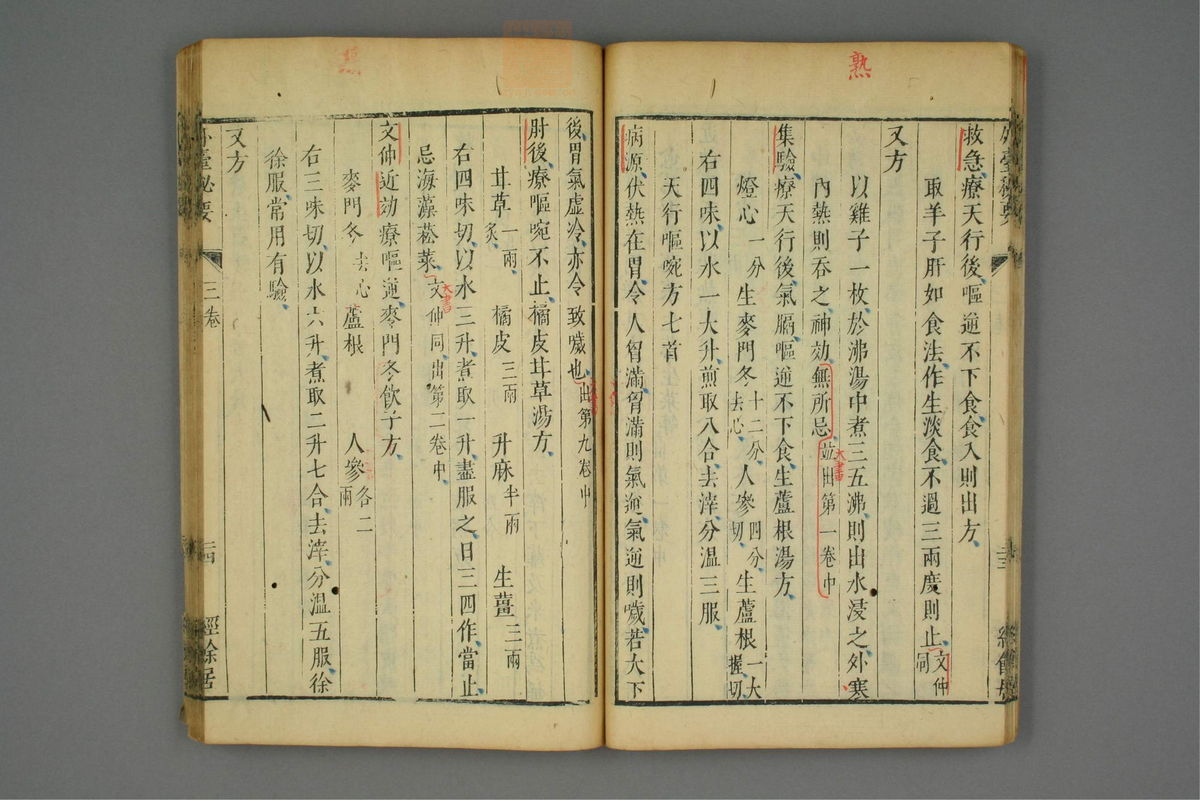 熟
救急療天行後嘔逆不下食食入則出方
取羊子肝如食法作生淡食不過三兩度則止文仲同
又方
以雞子一枚於沸湯中煮三五沸則出水浸之外寒
內熱則吞之神効無所忌並出第一卷中
大書
集驗療天行後氣膈嘔逆不下食生蘆根湯方
燈心一分 生麥門冬十二分去心 人參四分切 生蘆根一大握切
右四味以水一大升煎取八合去滓分溫三服
天行嘔啘方七首
病源伏熱在胃令人胷滿胷滿則氣逆氣逆則噦若大下
後胃氣虛冷亦令致噦也出第九卷中
肘後療嘔啘不止橘皮甘草湯方
甘草一兩炙 橘皮三兩 升麻半兩 生薑三兩
右四味切以水三升煮取一升盡服之日三四作當止
忌海藻菘菜文仲同出第二卷中
大書
文仲近効療嘔逆麥門冬飲子方
麥門冬去心 蘆根 人參各二兩
右三味切以水六升煮取二升七合去滓分溫五服徐
徐服常用有驗
又方
外臺秘要
三卷
二四
經餘居